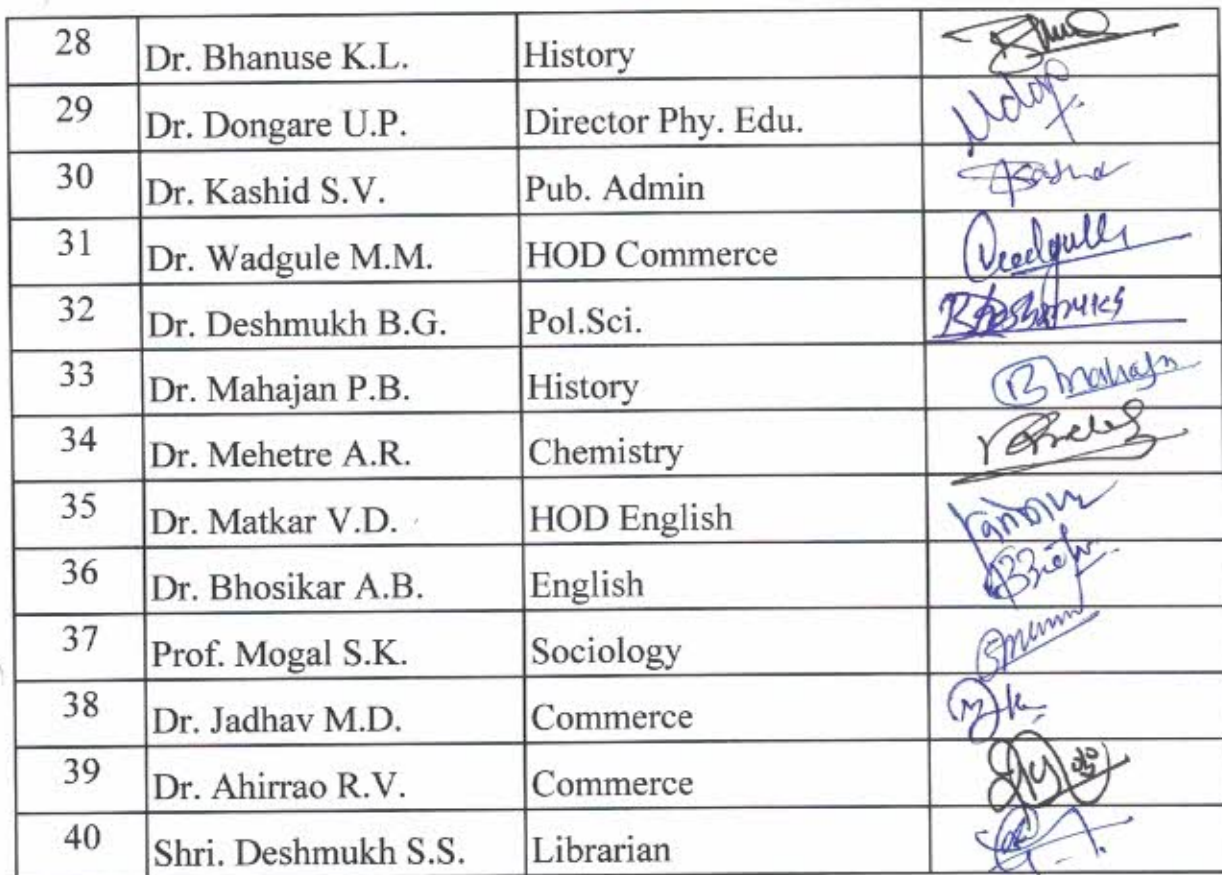 28 Dr. Bhanuse K.L. History
29 Dr. Dongare U.P. Director Phy. Edu.
30 Dr. Kashid S.V. Pub. Admin
31 Dr. Wadgule M.M. HOD Commerce
32 Dr. Deshmukh B.G. Pol.Sci.
33 Dr. Mahajan P.B. History
34 Dr. Mehetre A.R. Chemistry
35 Dr. Matkar V.D. HOD English
36 Dr. Bhosikar A.B. English
37 Prof. Mogal S.K. Sociology
38 Dr. Jadhav M.D. Commerce
39 Dr. Ahirrao R.V. Commerce
40 Shri. Deshmukh S.S. Librarian